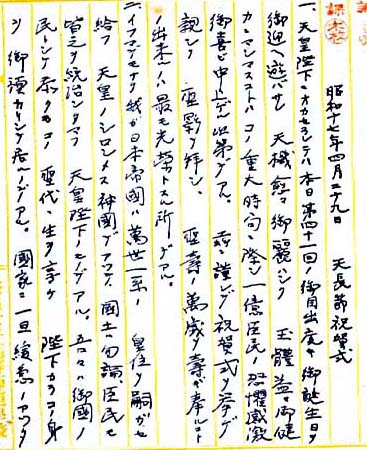 昭和十七年四月二十九日 天長節祝賀式
一、天皇陛下ニオカセラレテハ本日第四十一回ノ御目出度キ御誕生日ヲ
御迎ヘ遊バサレ 天機愈々御麗ハシク 玉體益々御健
カニマシマスコトハコノ重大時局ニ際シ一億臣民ノ恐懼感激
御喜ビ申シ上グル次第デアル。茲ニ謹ンデ祝賀式ヲ挙ゲ
親シク 聖影ヲ拝シ、聖壽ノ萬歳ヲ壽ギ奉ルコト
ノ出来ルハ最モ光榮トスル所デアル。
二、イフマデモナク我が日本帝國ハ萬世一系ノ 皇位ヲ嗣ガセ
給フ 天皇ノシロシメス神國デアツテ、國土ハ勿論、臣民モ
皆之ヲ統治シタマフ 天皇陛下ノモノデアル。吾々ハ御國ノ
民トシテ忝クモコノ 聖代ニ生ヲ享ケ 陛下カラコノ身
ヲ御預カリシテ居ルノデアル。 國家ニ一旦緩急ノアツタ